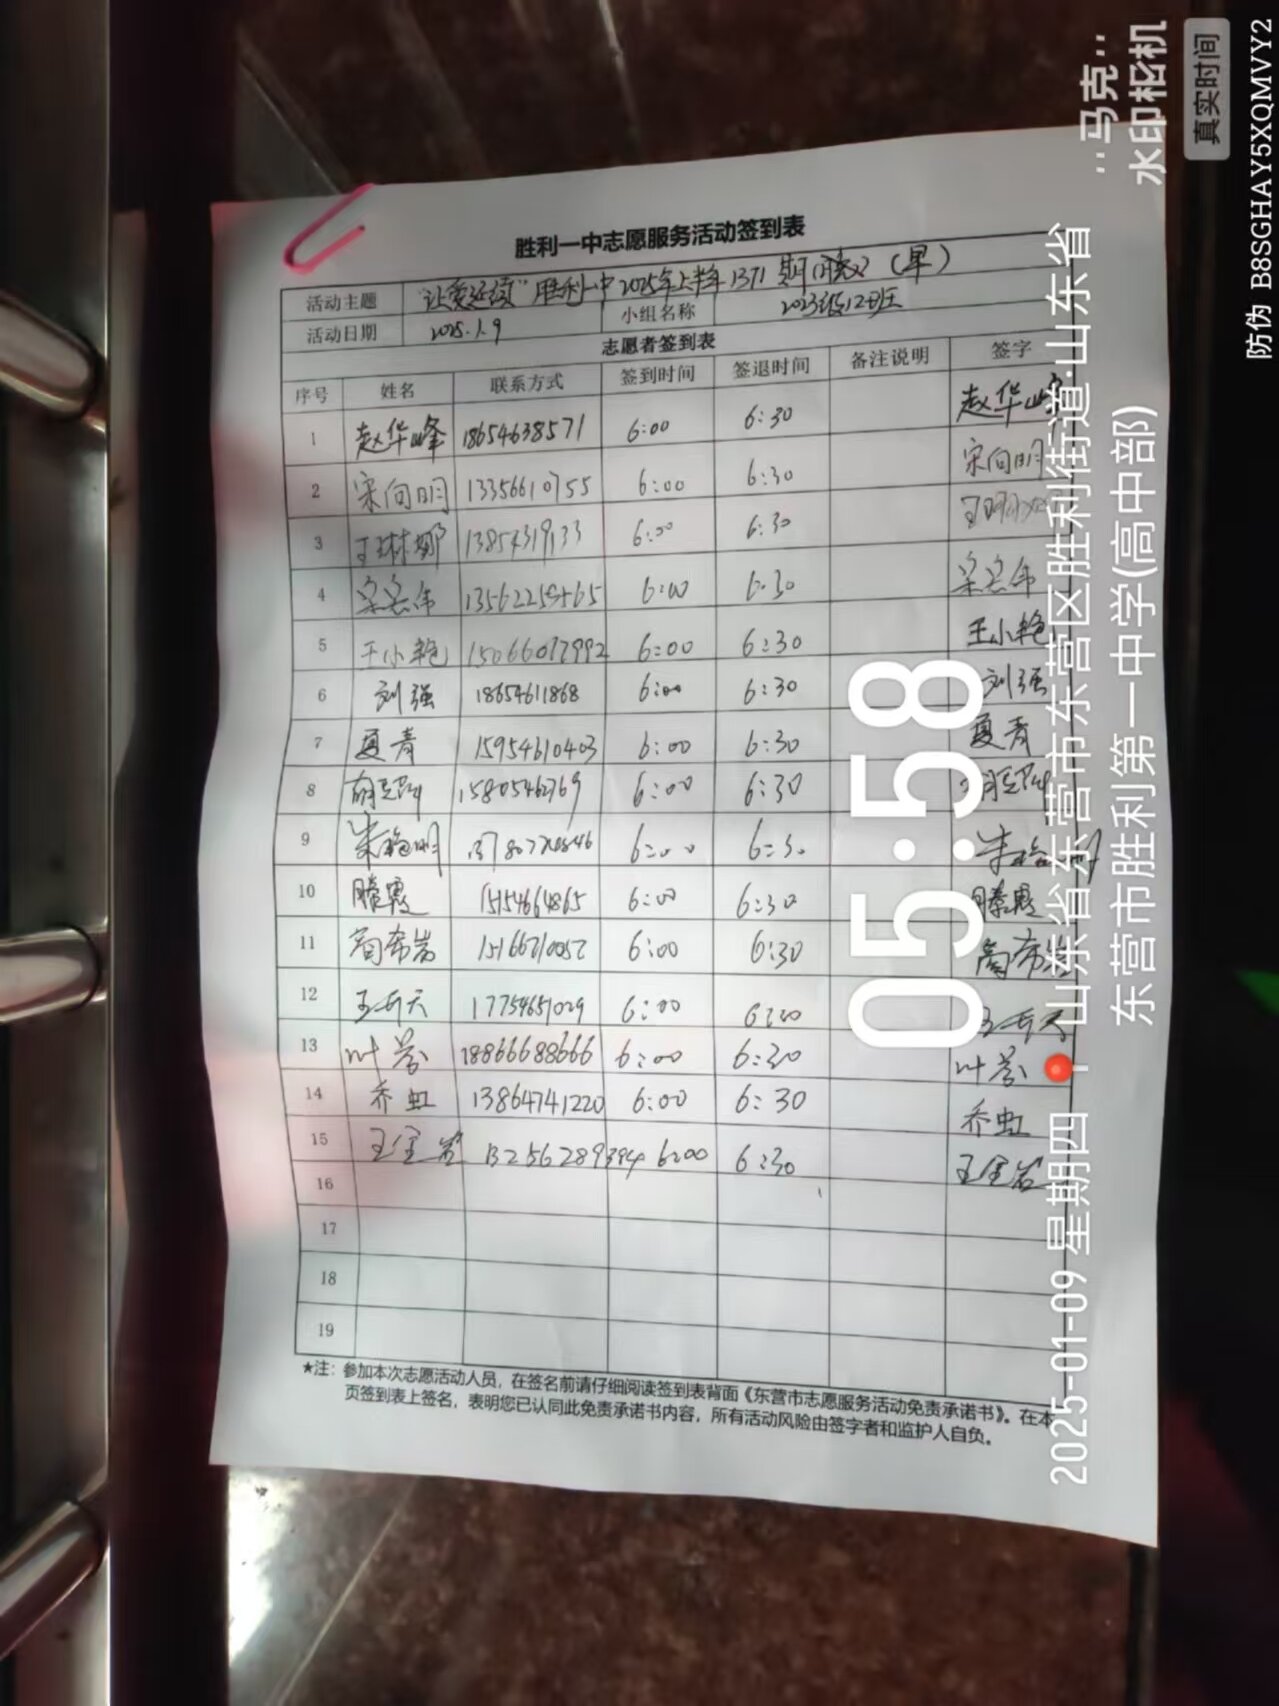 胜利一中志愿服务活动签到表
活动主题 "让爱延续"胜利一中2025年上半年1371期(晓义)(早)
活动日期 2025.1.9 小组名称 2023级12班
志愿者签到表
序号 姓名 联系方式 签到时间 签退时间 备注说明 签字
1 赵华峰 18654638571 6:00 6:30 赵华峰
2 宋向明 13356610755 6:00 6:30 宋向明
3 王琳娜 13854319133 6:00 6:30
4 6:00 6:30
5 王小艳 15066077992 6:00 6:30 王小艳
6 刘强 18654611868 6:00 6:30 刘强
7 夏青 15954610403 6:00 6:30 夏青
8 15805462769 6:00 6:30
9 朱艳明 6:00 6:30 朱艳明
10 滕霞 15154664865 6:00 6:30 滕霞
11 6:00 6:30
12 17754651029 6:00 6:30
13 18866688666 6:00 6:30
14 乔虹 13864741220 6:00 6:30 乔虹
15 13256289394 6:00 6:30
16
17
18
19
★注：参加本次志愿活动人员，在签名前请仔细阅读签到表背面《东营市志愿服务活动免责承诺书》。在本
页签到表上签名，表明您已认同此免责承诺书内容，所有活动风险由签字者和监护人自负。
05:58
2025-01-09 星期四 山东省东营市东营区胜利街道·山东省
东营市胜利第一中学(高中部)
"马克"
水印相机
真实时间
防伪 B8SGHAY5XQMVY2